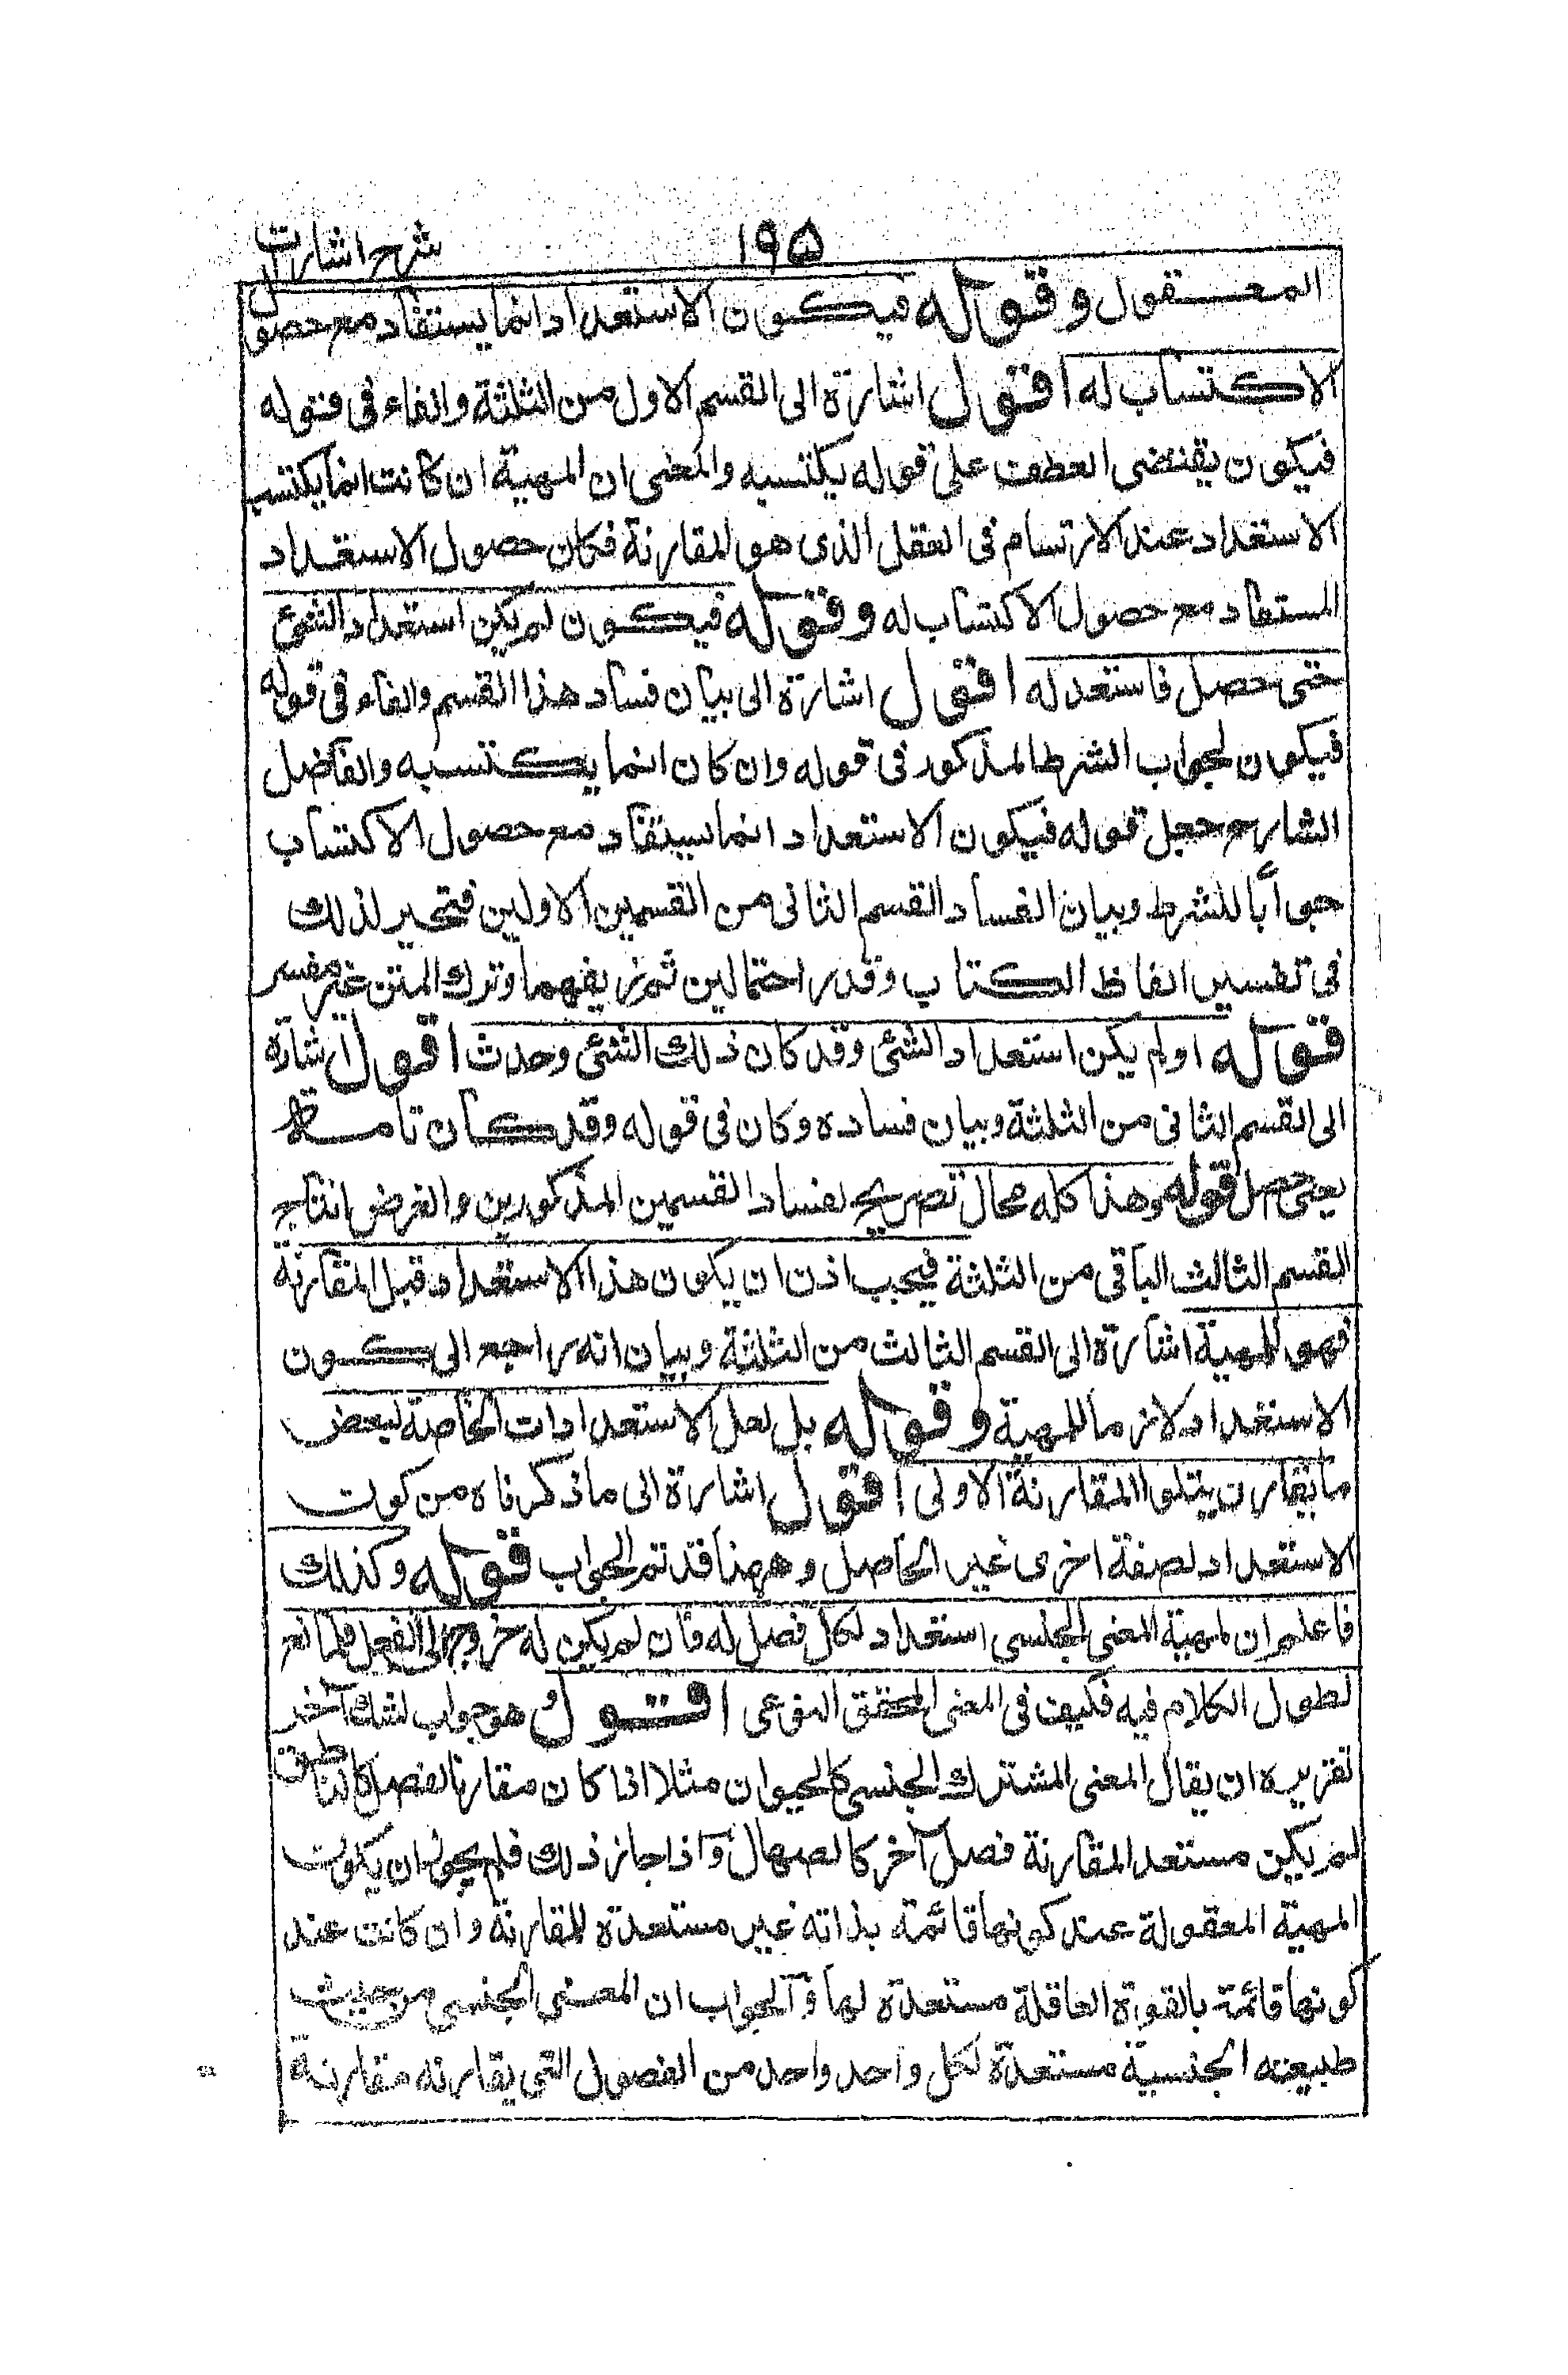 ١٩٥ شرح اشارات
المعقول وقوله فيكون الاستعداد انما يستفاد مع حصول
الاكتساب له اقول اشارة الى القسم الاول من الثلثة والفاء فى قوله
فيكون يقتضى العطف على قوله يكتسبه والمعنى ان المهية ان كانت انما يكتسب
الاستعداد عند الارتسام فى العقل الذى هو المقارنة فكان حصول الاستعداد
المستفاد مع حصول الاكتساب له وقوله فيكون لم يكن استعداد الشئ
حتى حصل فاستعد له اقول اشارة الى بيان فساد هذا القسم والفاء فى قوله
فيكون لجواب الشرط المذكور فى قوله وان كان انما يكتسبه والفاضل
الشارح جعل قوله فيكون الاستعداد انما يستفاد مع حصول الاكتساب
جوابًا للشرط وبيان الفساد القسم الثانى من القسمين الاولين فتحير لذلك
فى تفسير الفاظ الكتاب وقدر احتمالين ثم زيفهما وترك المتن غير مفسر
قوله او لم يكن استعداد الشئ وقد كان ذلك الشئ وحدث اقول اشارة
الى القسم الثانى من الثلثة وبيان فساده وكان فى قوله وقد كان تامة
يعنى حصل قوله وهذا كله محال تصريح بفساد القسمين المذكورين والغرض انتاج
القسم الثالث الباقى من الثلثة فيجب اذن ان يكون هذا الاستعداد قبل المقارنة
فهو للمهية اشارة الى القسم الثالث من الثلثة وبيان انه راجع الى كون
الاستعداد لازما للمهية وقوله بل لعل الاستعدادات الخاصة لبعض
ما يقارن يتلوا المقارنة الاولى اقول اشارة الى ما ذكرناه من كون
الاستعداد لصفة اخرى غير الحاصل وههنا قد تم الجواب قوله وكذلك
فاعلم ان لمهية المعنى الجنسى استعداد لكل فصل له فان لم يكن له خروج الى الفعل فلمانع
لطول الكلام فيه فكيف فى المعنى المحقق النوعى اقول هو جواب لشك آخر
تقريره ان يقال المعنى المشترك الجنسى كالحيوان مثلا اذا كان مقارنا لفصل كالناطق
لم يكن مستعد المقارنة فصل آخر كالصهال واذا جاز ذلك فلم يجوز ان يكون
المهية المعقولة عند كونها قائمة بذاته غير مستعدة للمقارنة وان كانت عند
كونها قائمة بالقوة العاقلة مستعدة لها والجواب ان المعنى الجنسى من حيث
طبيعته الجنسية مستعدة لكل واحد واحد من الفصول التى يقارنه مقارنة